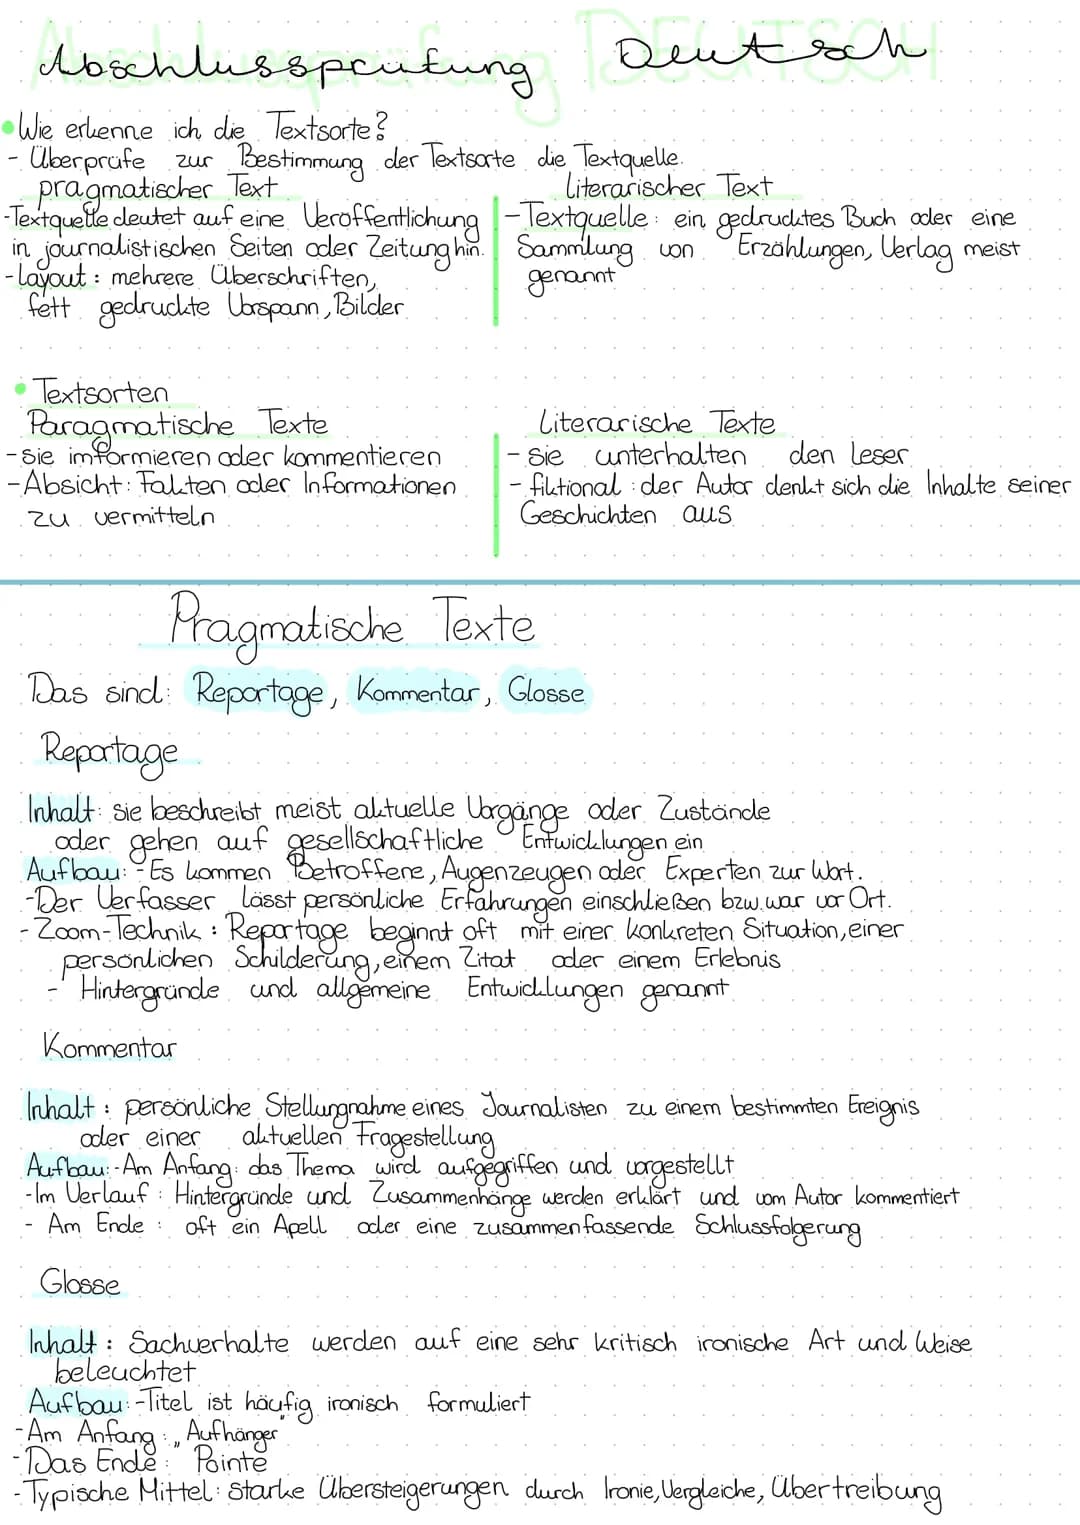 Abschlussprüfung Deutsch
• Wie erkenne ich die Textsorte?
- Überprüfe zur Bestimmung der Textsorte die Textquelle.
pragmatischer Text
- Textquelle deutet auf eine Veröffentlichung
in journalistischen Seiten oder Zeitung hin.
- Layout: mehrere Überschriften,
fett gedruckte Vorspann, Bilder
literarischer Text
- Textquelle: ein gedrucktes Buch oder eine
Sammlung von Erzählungen, Verlag meist
genannt
• Textsorten
Paragmatische Texte
- sie imformieren oder kommentieren
- Absicht: Fakten oder Informationen
zu vermitteln
Literarische Texte
- sie unterhalten den Leser
- fiktional: der Autor denkt sich die Inhalte seiner
Geschichten aus
Pragmatische Texte
Das sind: Reportage, Kommentar, Glosse
Reportage
Inhalt: sie beschreibt meist aktuelle Vorgänge oder Zustände
oder gehen auf gesellschaftliche Entwicklungen ein
Aufbau: - Es kommen Betroffene, Augenzeugen oder Experten zur Wort.
- Der Verfasser lässt persönliche Erfahrungen einschließen bzw. war vor Ort.
- Zoom-Technik: Reportage beginnt oft mit einer konkreten Situation, einer
persönlichen Schilderung, einem Zitat oder einem Erlebnis
- Hintergründe und allgemeine Entwicklungen genannt
Kommentar
Inhalt: persönliche Stellungnahme eines Journalisten zu einem bestimmten Ereignis
oder einer aktuellen Fragestellung
Aufbau: - Am Anfang: das Thema wird aufgegriffen und vorgestellt
- Im Verlauf: Hintergründe und Zusammenhänge werden erklärt und vom Autor kommentiert
- Am Ende: oft ein Apell oder eine zusammenfassende Schlussfolgerung
Glosse
Inhalt: Sachverhalte werden auf eine sehr kritisch ironische Art und Weise
beleuchtet
Aufbau: - Titel ist häufig ironisch formuliert
- Am Anfang: „Aufhänger"
- Das Ende: Pointe
- Typische Mittel: starke Übersteigerungen durch Ironie, Vergleiche, Übertreibung